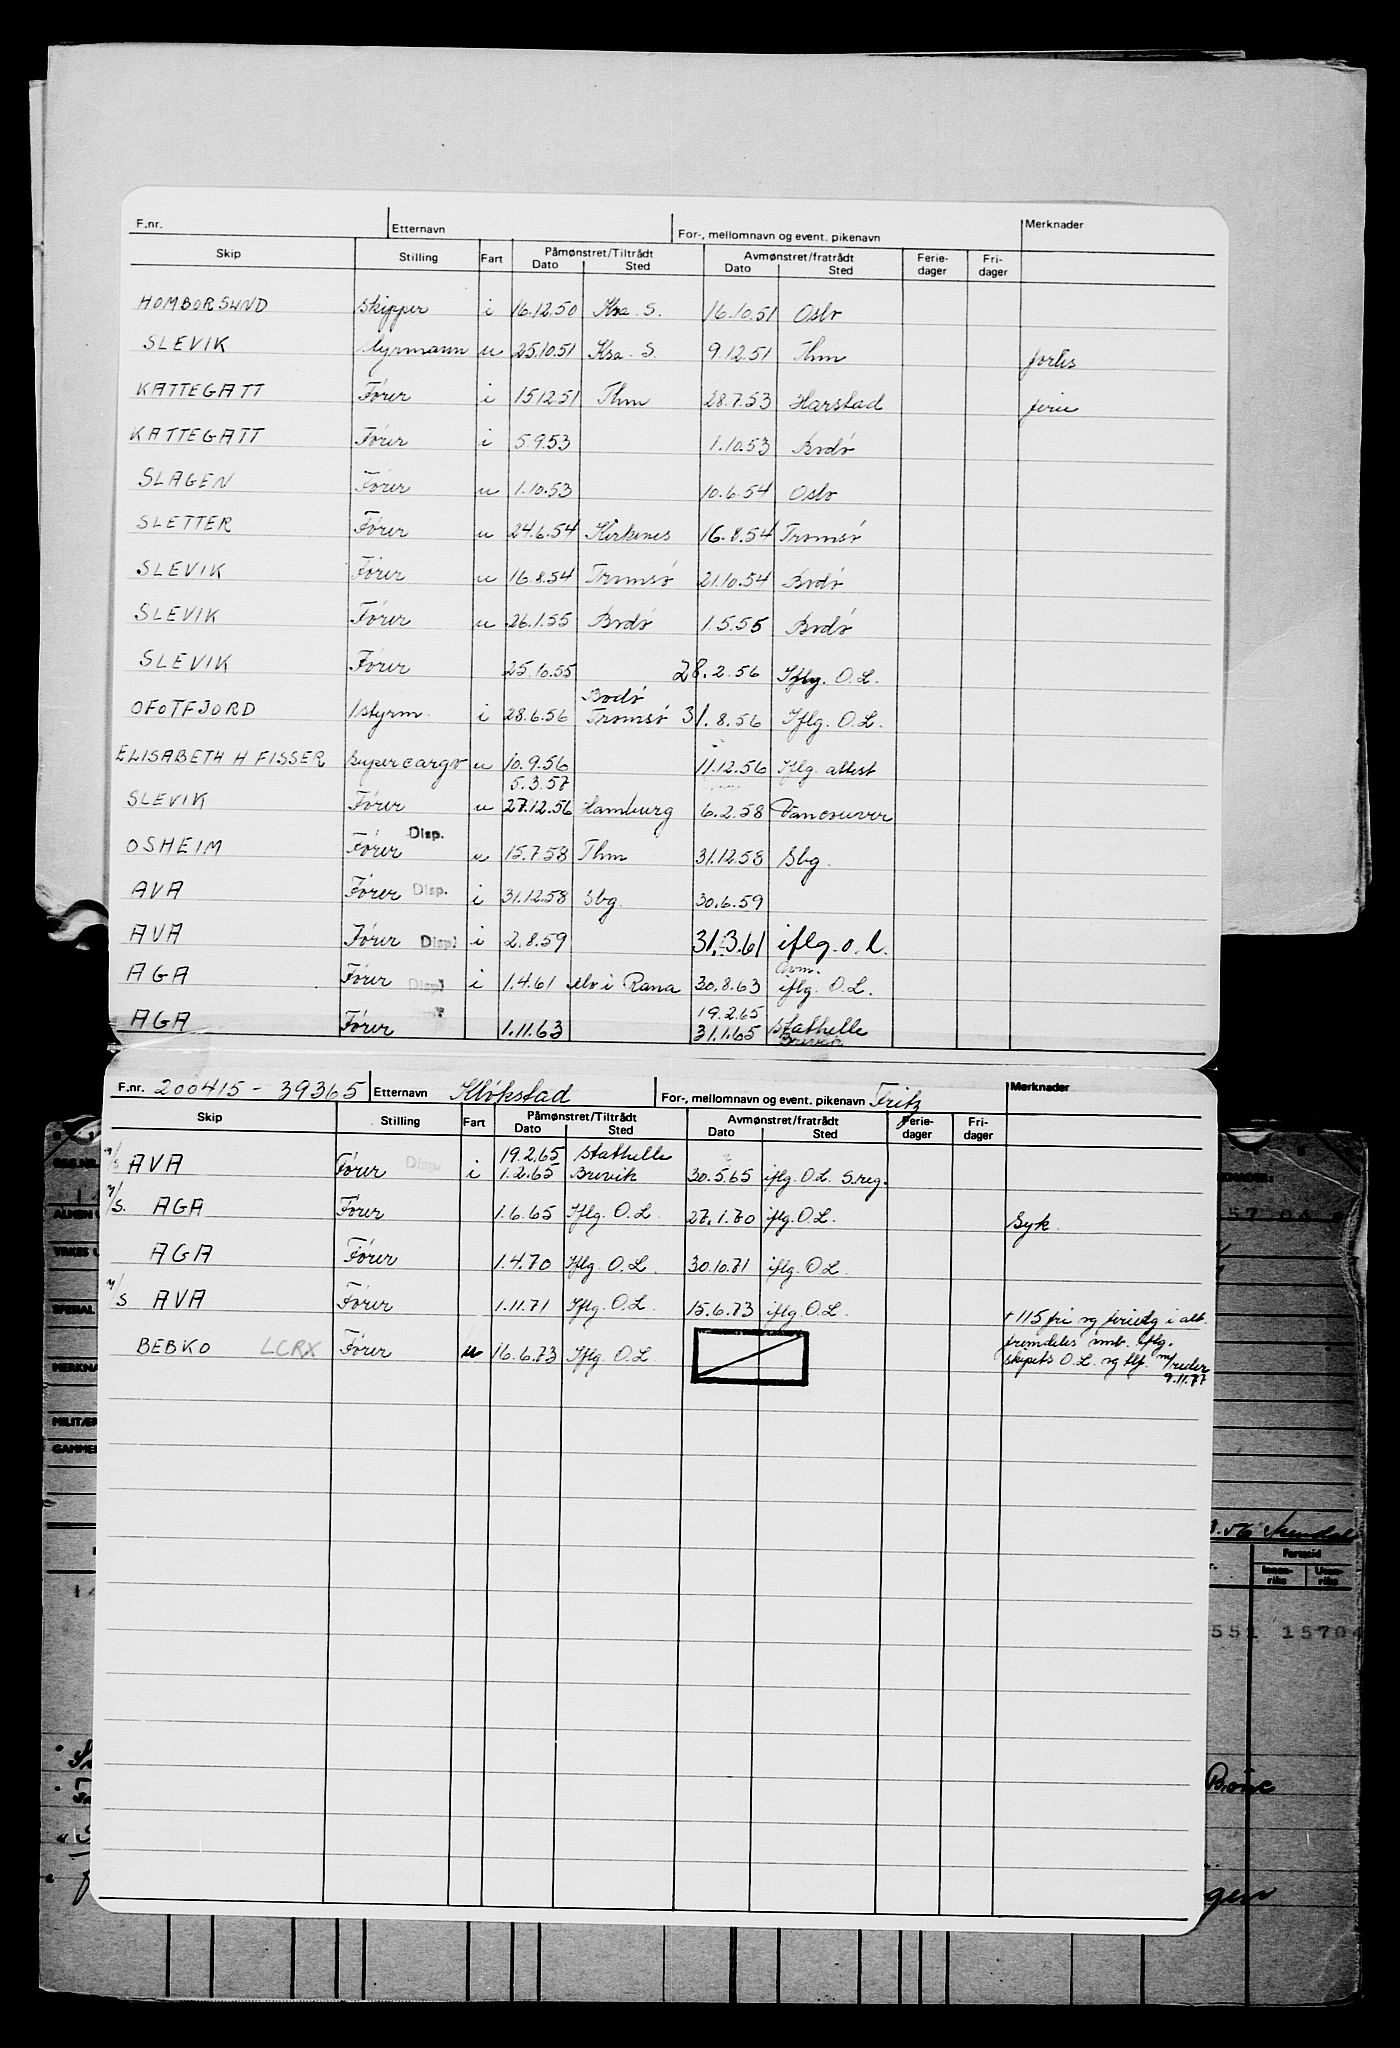 F.nr. Etternavn For-, mellomnavn og event. pikenavn Merknader
Skip Stilling Fart Påmønstret/Tiltrådt Dato Sted Avmønstret/fratrådt Dato Sted Ferie-dager Fri-dager
HOMBORSUND Skipper i 16.12.50 Kra. S. 16.10.51 Oslo
SLEVIK Styrmann u 25.10.51 Kra. S. 9.12.51 Thm forlis
KATTEGATT Fører i 15.12.51 Thm 28.7.53 Harstad ferie
KATTEGATT Fører i 5.9.53 1.10.53 Bodø
SLAGEN Fører u 1.10.53 10.6.54 Oslo
SLETTER Fører u 24.6.54 Kirkenes 16.8.54 Tromsø
SLEVIK Fører u 16.8.54 Tromsø 21.10.54 Bodø
SLEVIK Fører u 26.1.55 Bodø 1.5.55 Bodø
SLEVIK Fører 25.10.55 28.2.56 Iflg. O.L.
Bodø
OFOTFJORD 1styrm. i 28.6.56 Tromsø 31.8.56 Iflg. O.L.
ELISABETH H FISSER Supercargo u 10.9.56 11.12.56 Iflg. attest
5.3.57
SLEVIK Fører u 27.12.56 Hamburg 6.2.58 Vancouver
OSHEIM Fører Disp. u 15.7.58 Thm 31.12.58 Sbg.
AVA Fører Disp. i 31.12.58 Sbg. 30.6.59
AVA Fører Displ i 2.8.59 31.3.61 iflg. o.l.
avm.
AGA Fører Displ i 1.4.61 Mo i Rana 30.8.63 iflg. O.L.
19.2.65
AGA Fører 1.11.63 31.1.65 Stathelle
Brevik
F.nr. 200415-39365 Etternavn Kløkstad For-, mellomnavn og event. pikenavn Fritz Merknader
Skip Stilling Fart Påmønstret/Tiltrådt Dato Sted Avmønstret/fratrådt Dato Sted Ferie-dager Fri-dager
19.2.65 Stathelle
m/s AVA Fører Disp. i 1.2.65 Brevik 30.5.65 iflg. O.L. S.reg.
M/S. AGA Fører 1.6.65 Iflg. O.L. 27.1.70 iflg. O.L. Syk.
AGA Fører 1.4.70 Iflg O.L. 30.10.71 iflg. O.L.
M/S AVA Fører 1.11.71 Iflg. O.L. 15.6.73 iflg. O.L. + 115 fri og feriedg i alt.
BEBKO LCRX Fører u 16.6.73 Iflg. O.L fremdeles omb. iflg.
skipets O.L. og tlf. m/reder
9.11.77
REG.NR.
MERKNADER:
57 04
ALMEN
VIRKES
SPESIAL
MERKNA
MILITÆR
GAMMEL
.56
Fartstid
Innen-riks Uten-riks
551 1570
gen